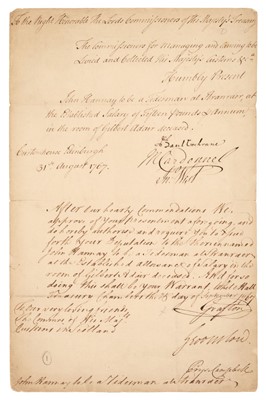 To the Right Honorable the Lords Commissioners of His Majestys Treasury
The Commissioners for Managing and Causing to be
Levied and Collected His Majestys Customs &c.
Humbly Present
John Hannay to be a Tidesman at Stranraer, at
the Established Salary of Fifteen Pounds p Annum
in the room of Gilbert Adair deceased.
Customhouse Edinburgh
31st August 1767.
Basil Cochrane
M Cardonnel
After our hearty Commendations We
approve of Your Presentment aforegoing, and
do hereby authorise and require You to Send
forth Your Deputation to the therein named
John Hannay to be a Tidesman at Stranraer
at the Established allowance, or Salary in the
room of Gilbert Adair deceased. And for so
doing this shall be Your Warrant. Whitehall
Treasury Chambers the day of September 1767
To Our very loving friends
the Commrs. of His Majts.
Customs in Scotland
Grafton
Townshend
Pryse Campbell
John Hannay to be a Tidesman at Stranraer